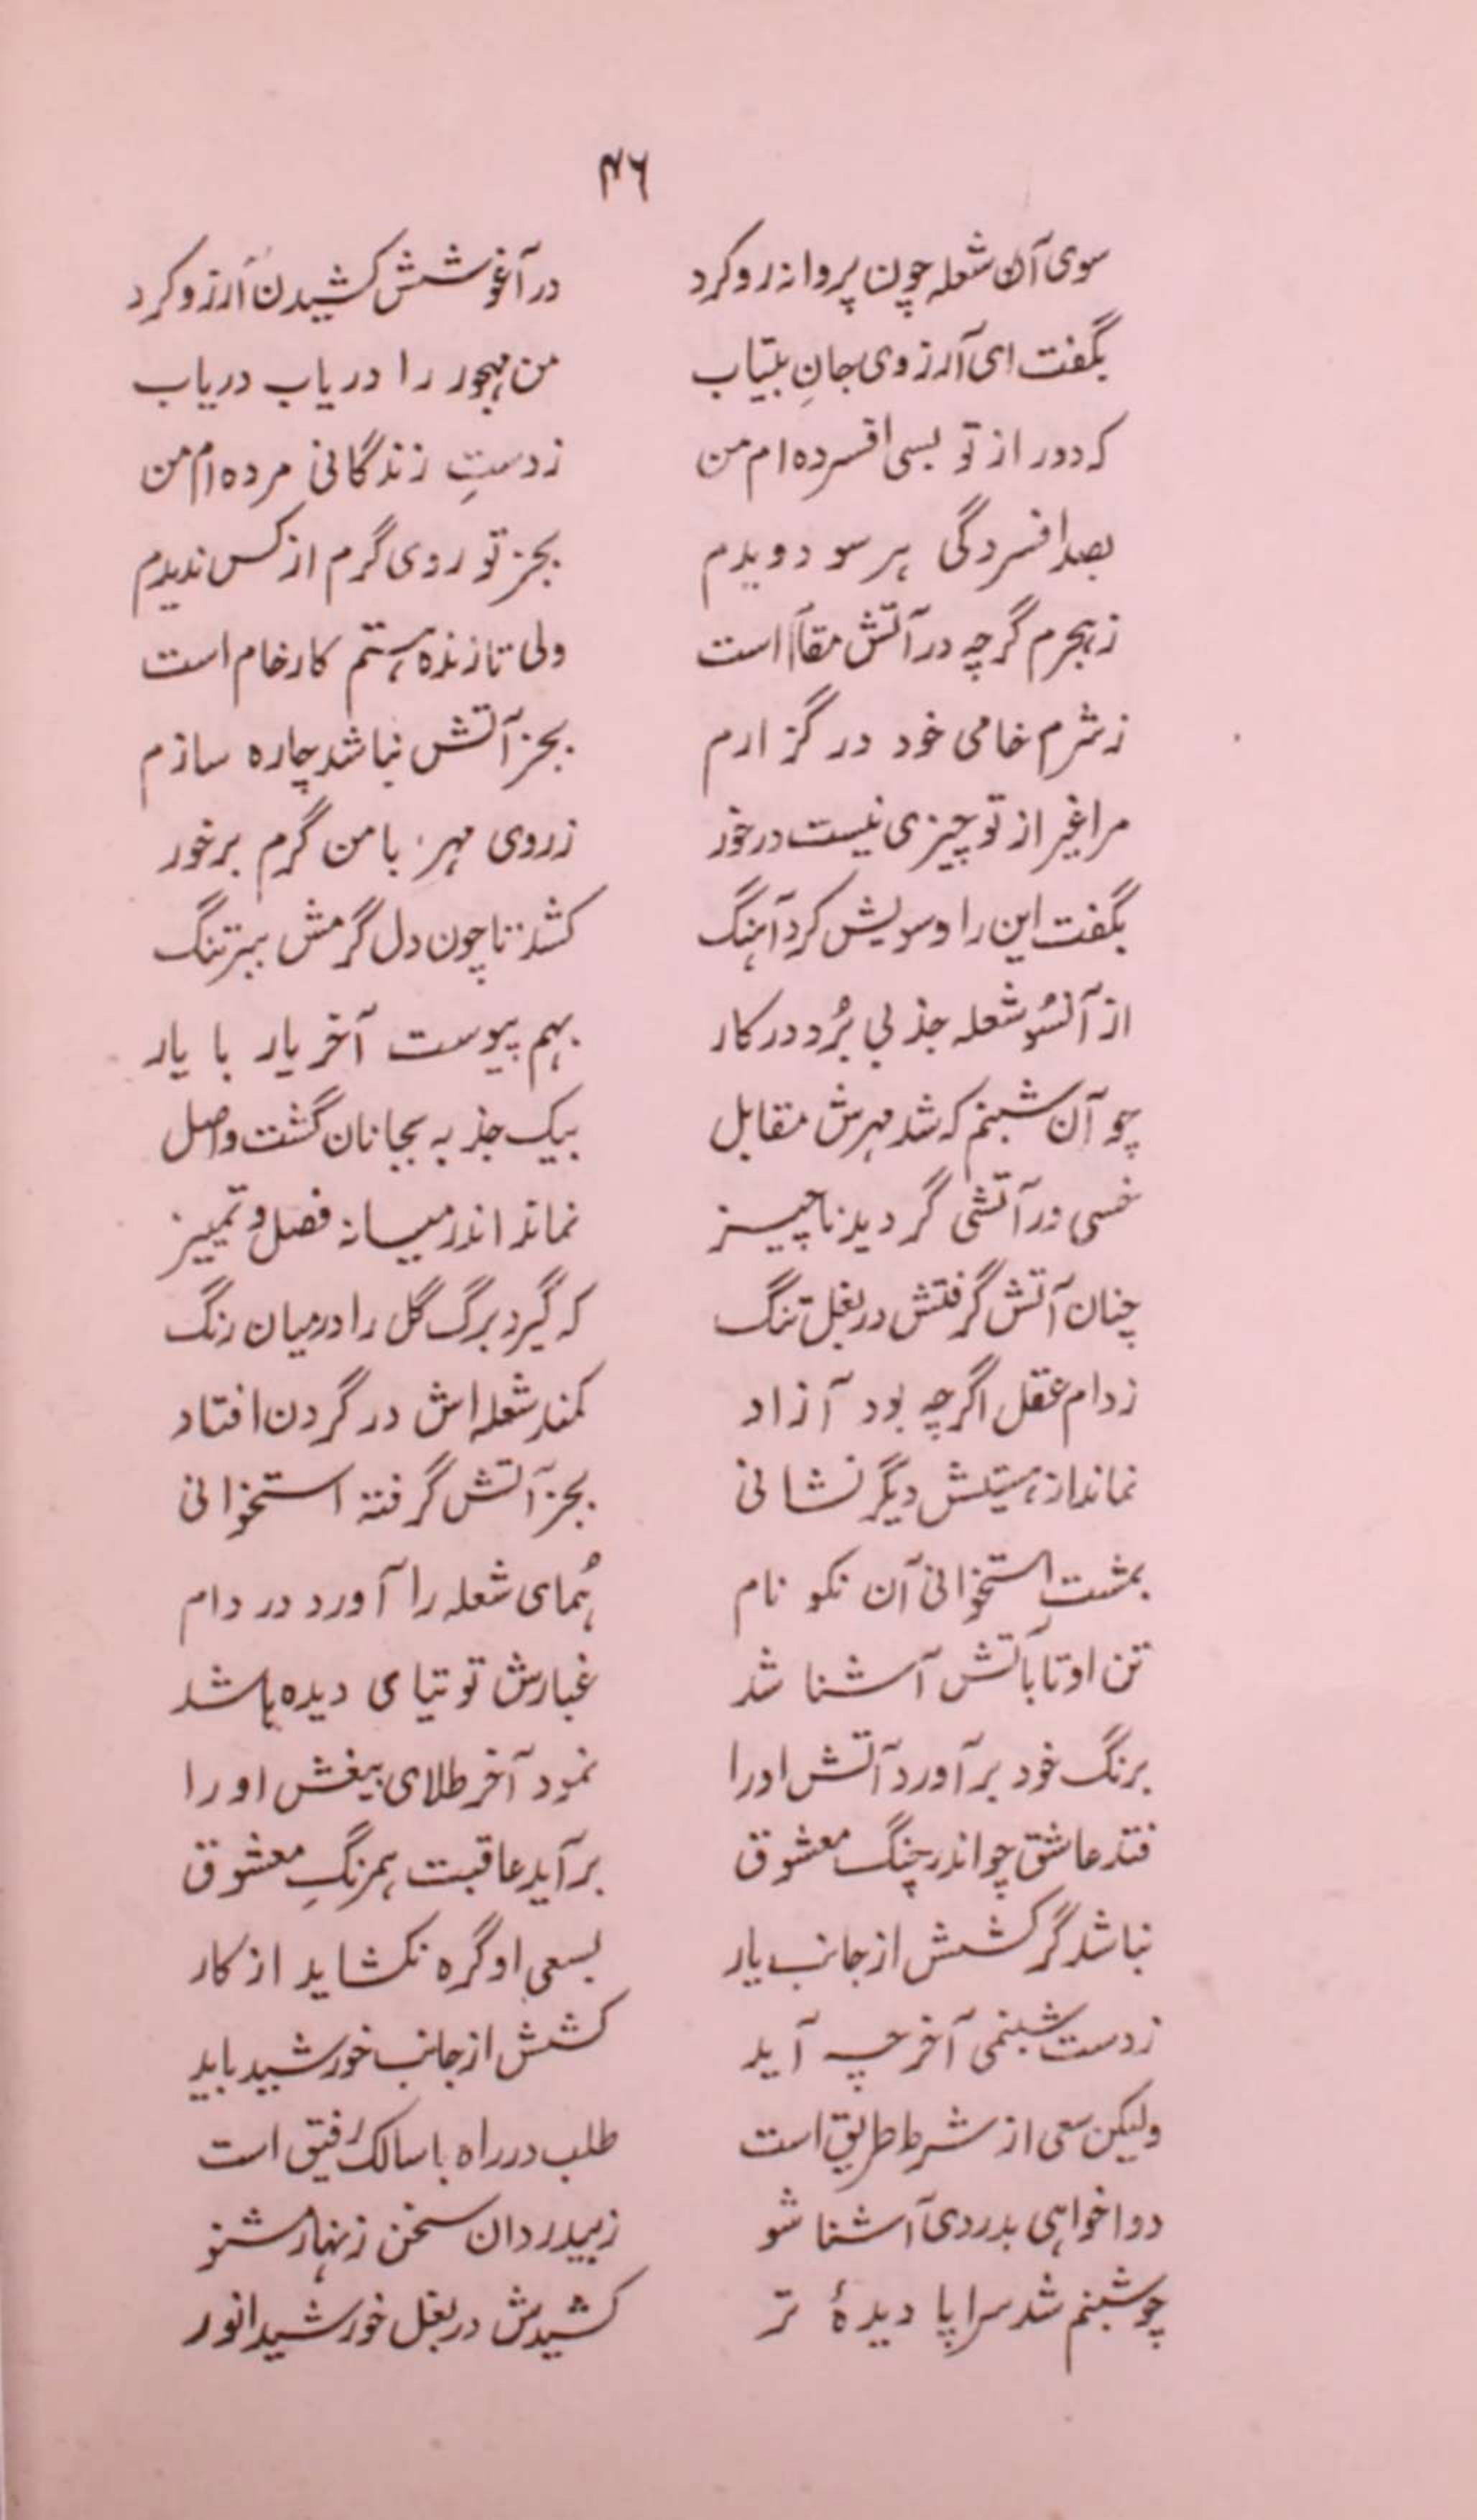 ۴۶
سوی آن شعله چون پروانه رو کرد در آغوشش کشیدن آرزو کرد
بگفت ای آرزوی جانِ بیتاب من مهجور را دریاب دریاب
که دور از تو بسی افسرده ام من ز دستِ زندگانی مرده ام من
بصد افسردگی هر سو دویدم بجز تو روی گرم از کس ندیدم
ز هجرم گرچه در آتش مقام است ولی تا زنده هستم کار خام است
ز شرم خامی خود در گزارم بجز آتش نباشد چاره سازم
مرا غیر از تو چیزی نیست در خور ز روی مهر با من گرم بر خور
بگفت این را و سویش کرد آهنگ کشد تا چون دل گرمش ببر تنگ
از آنسُو شعله جذبی بُرد در کار بهم پیوست آخر یار با یار
چو آن شبنم که شد مهرش مقابل بیک جذبه بجانان گشت واصل
خسی در آتشی گردید ناچیز نماند اندر میانه فصل و تمییز
چنان آتش گرفتش در بغل تنگ که گیرد برگ گل را در میان رنگ
ز دام عقل اگرچه بود آزاد کمند شعله اش در گردن افتاد
نماند از هستیش دیگر نشانی بجز آتش گرفته استخوانی
بمشتِ استخوانی آن نکو نام هُمای شعله را آورد در دام
تن او تا بآتش آشنا شد غبارش توتیای دیده ها شد
برنگ خود بر آورد آتش اورا نمود آخر طلای بیغش اورا
فتد عاشق چو اندر چنگ معشوق بر آید عاقبت همرنگِ معشوق
نباشد گر کشش از جانب یار بسعی او گره نکشاید از کار
ز دست شبنمی آخر چه آید کشش از جانب خورشید باید
ولیکن سعی از شرط طریق است طلب در راه با سالک رفیق است
دوا خواهی بدردی آشنا شو ز بیدردان سخن زنهار مشنو
چو شبنم شد سراپا دیدهٔ تر کشیدش در بغل خورشید انور